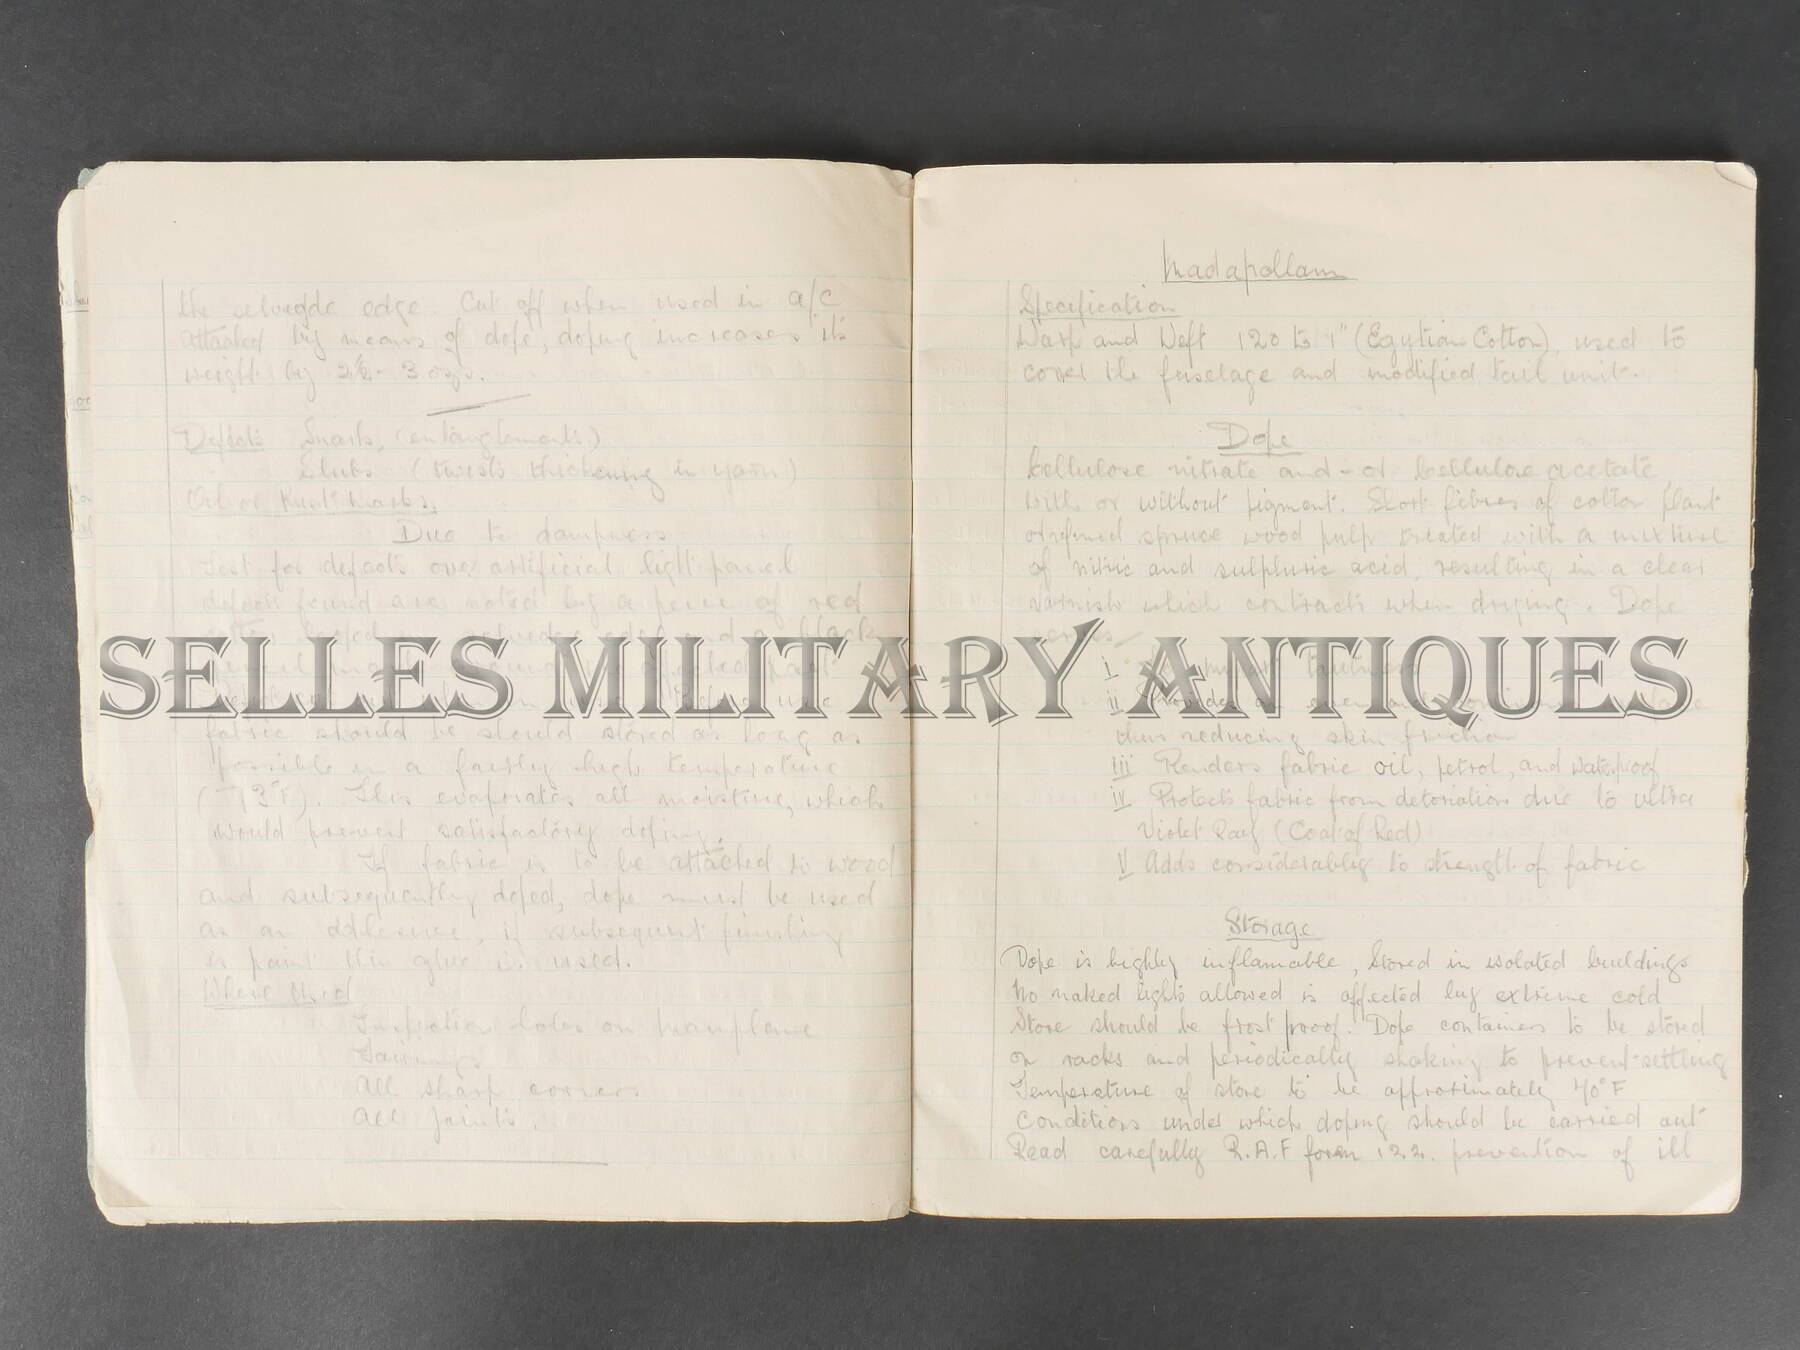 the selvedge edge. Cut off when used in a/c
Attached by means of dope, doping increases its
weight by 2½ - 3 ozs.
Defects Snarls, (entanglements)
Slubs (twists thickening in yarn)
Oil or Rust marks,
Due to dampness
Test for defects over artificial light panel
defects found are noted by a piece of red
selvedge edge and a black
fabric should be should stored as long as
possible in a fairly high temperature
(73°F). This evaporates all moisture, which
would prevent satisfactory doping.
If fabric is to be attached to wood
and subsequently doped, dope must be used
as an adhesive, if subsequent finishing
is paint thin glue is used.
Where Used
Inspection holes on mainplane
Fairings
All sharp corners
All joints.
Madapollam
Specification
Warp and Weft 120 to 1" (Egytian Cotton), used to
cover the fuselage and modified tail unit.
Dope
Cellulose nitrate and - or Cellulose acetate,
with or without pigment. Short fibres of cotton plant
or refined spruce wood pulp treated with a mixture
of nitric and sulphuric acid, resulting in a clear
varnish which contracts when drying. Dope
serves
i tautness
ii Provides an even and
thus reducing skin friction
iii Renders fabric oil, petrol, and waterproof
iv Protects fabric from detoriation due to ultra
Violet Ray (Coat of Red)
V Adds considerably to strength of fabric
Storage
Dope is highly inflamable, Stored in isolated buildings
No naked lights allowed is affected by extreme cold
Store should be frost proof. Dope containers to be stored
on racks and periodically shaking to prevent settling
Temperature of store to be approximately 70°F
Conditions under which doping should be carried out
Read carefully R.A.F form 122. prevention of ill
SELLES MILITARY ANTIQUES